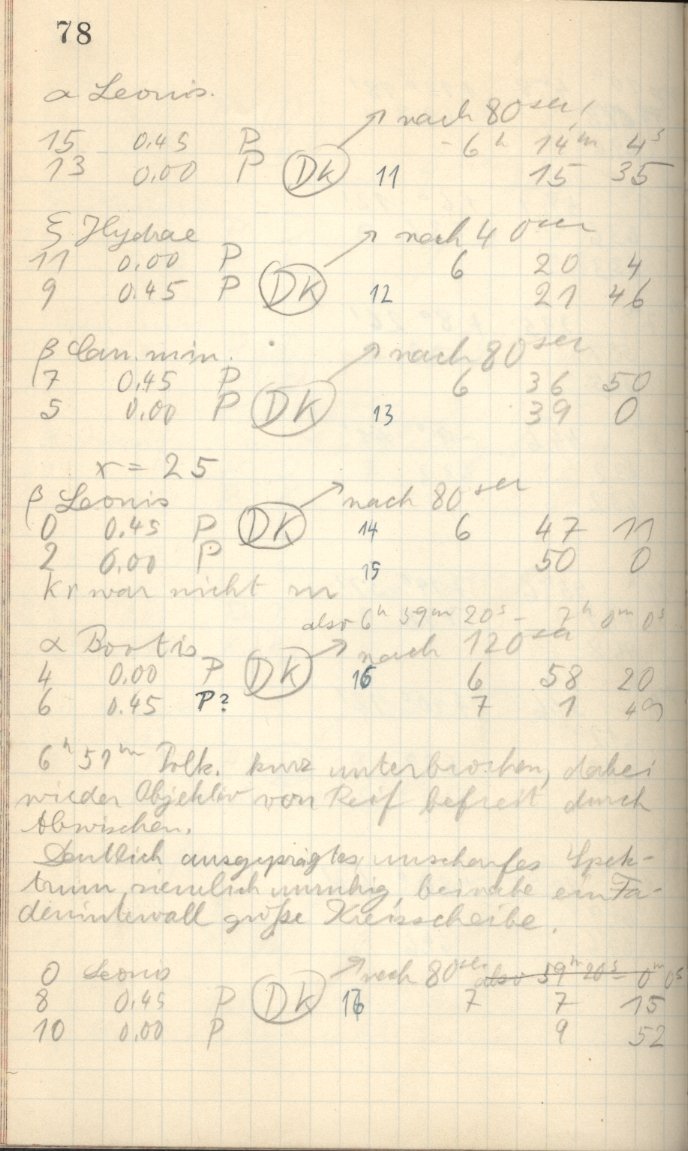 78
α Leonis.
nach 80 sec!
15 0.45 P 6h 14m 4s
13 0.00 P DK 11 15 35
ξ Hydrae nach 40 sec
11 0.00 P 6 20 4
9 0.45 P DK 12 21 46
β Can. min. nach 80 sec
7 0.45 P 6 36 50
5 0.00 P DK 13 39 0
r = 25
β Leonis nach 80 sec
0 0.45 P DK 14 6 47 11
2 0.00 P 15 50 0
Kr war nicht
also 6h 59m 20s – 7h 0m 0s
α Bootis nach 120 sec
4 0.00 P DK 16 6 58 20
6 0.45 P? 7 1
6h 51m kurz unterbrochen, dabei
wieder Objektiv von Reif befreit durch
Abwischen.
Deutlich ausgeprägtes unscharfes Spek-
trum, ziemlich unruhig, beinahe ein Fa-
denintervall große Kreisscheibe.
Leonis nach 80 sec also 59m 20s – 0m 0s
8 0.45 P DK 7 7 15
10 0.00 P 9 52